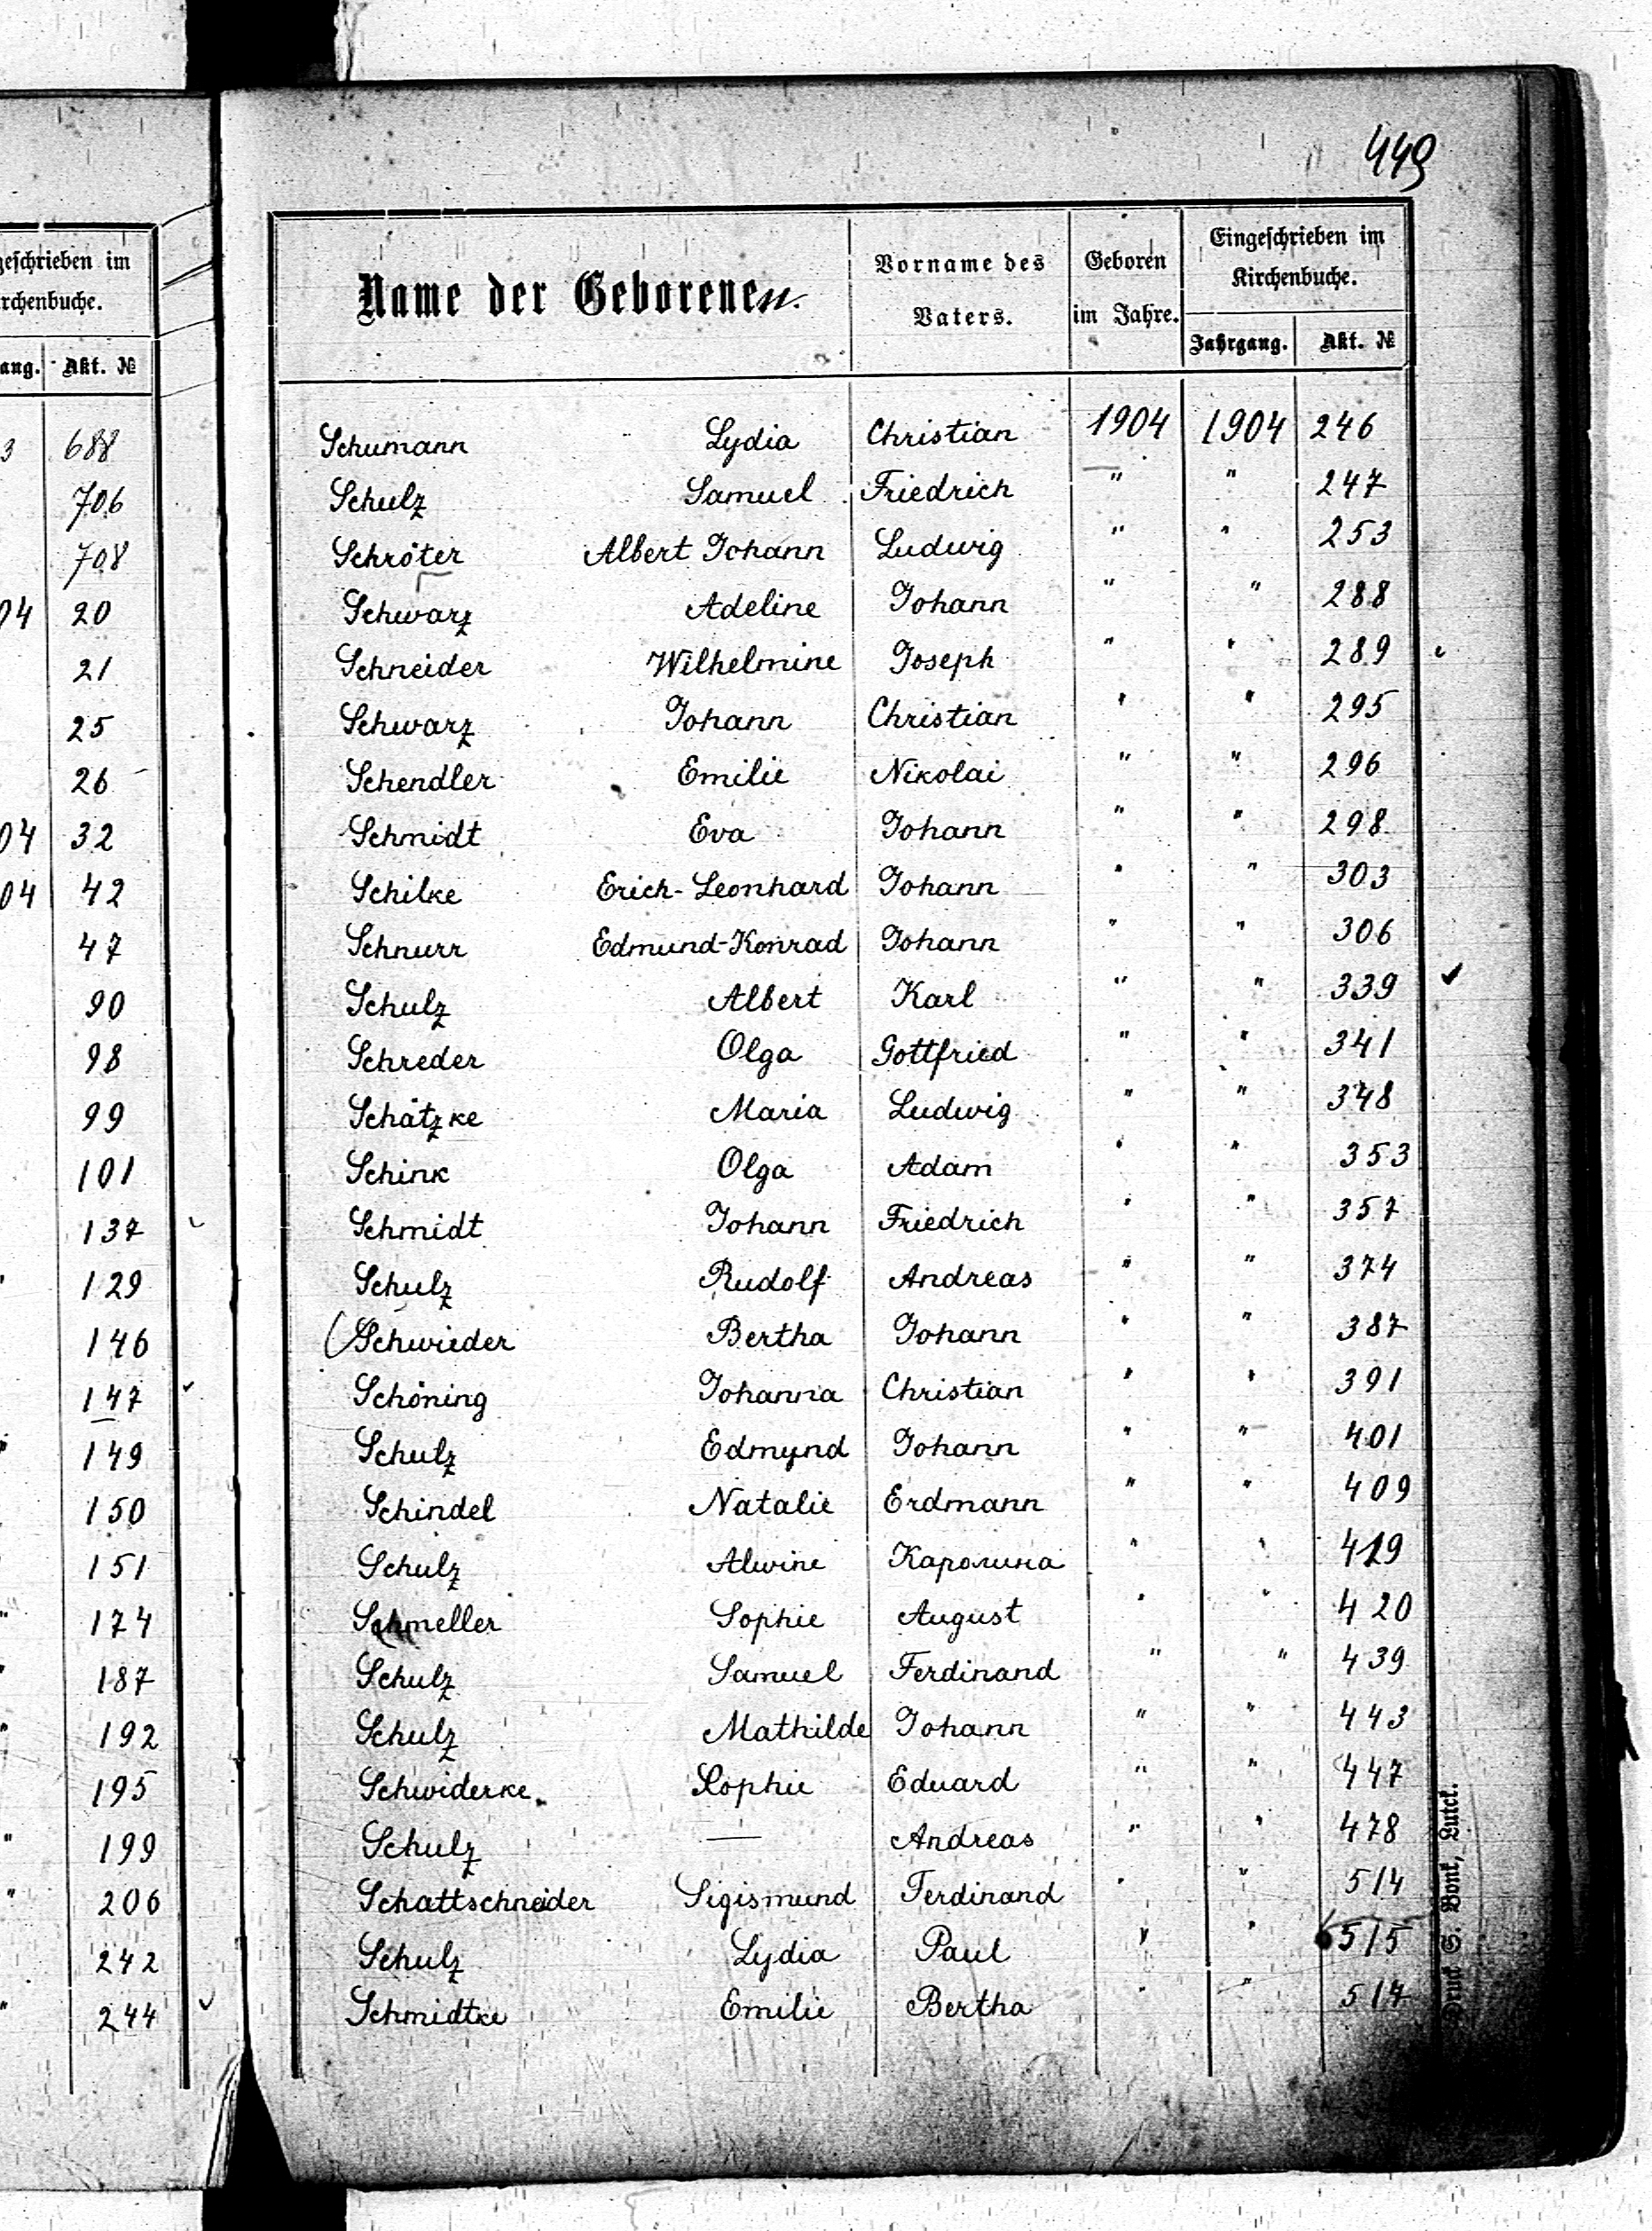 geschrieben im
irchenbuche.
ang. Akt. №
3 688
706
708
04 20
21
25
26
04 32
04 42
47
90
98
99
101
137
129
146
147
149
150
151
" 174
" 187
" 192
195
" 199
" 206
242
" 244
449
Name der Geborenen. Vorname des Vaters. Geboren im Jahre. Eingeschrieben im Kirchenbuche.
Jahrgang. Akt. №
Schumann Lydia Christian 1904 1904 246
Schulz Samuel Friedrich " " 247
Schröter Albert Johann Ludwig " " 253
Schwarz Adeline Johann " " 288
Schneider Wilhelmine Joseph " " 289
Schwarz Johann Christian " " 295
Schendler Emilie Nikolai " " 296
Schmidt Eva Johann " " 298
Schilke Erich-Leonhard Johann " " 303
Schnurr Edmund-Konrad Johann " " 306
Schulz Albert Karl " " 339
Schreder Olga Gottfried " " 341
Schätzke Maria Ludwig " " 348
Schink Olga Adam " " 353
Schmidt Johann Friedrich " " 357
Schulz Rudolf Andreas " " 374
Schwieder Bertha Johann " " 387
Schöning Johanna Christian " " 391
Schulz Edmund Johann " " 401
Schindel Natalie Erdmann " " 409
Schulz Alwine Каролина " " 419
Schmeller Sophie August " " 420
Schulz Samuel Ferdinand " " 439
Schulz Mathilde Johann " " 443
Schwiderke Sophie Eduard " " 447
Schulz — Andreas " " 478
Schattschneider Sigismund Ferdinand " " 514
Schulz Lydia Paul " " 515
Schmidtke Emilie Bertha " " 517
Druck S. Bonk, Lutck.